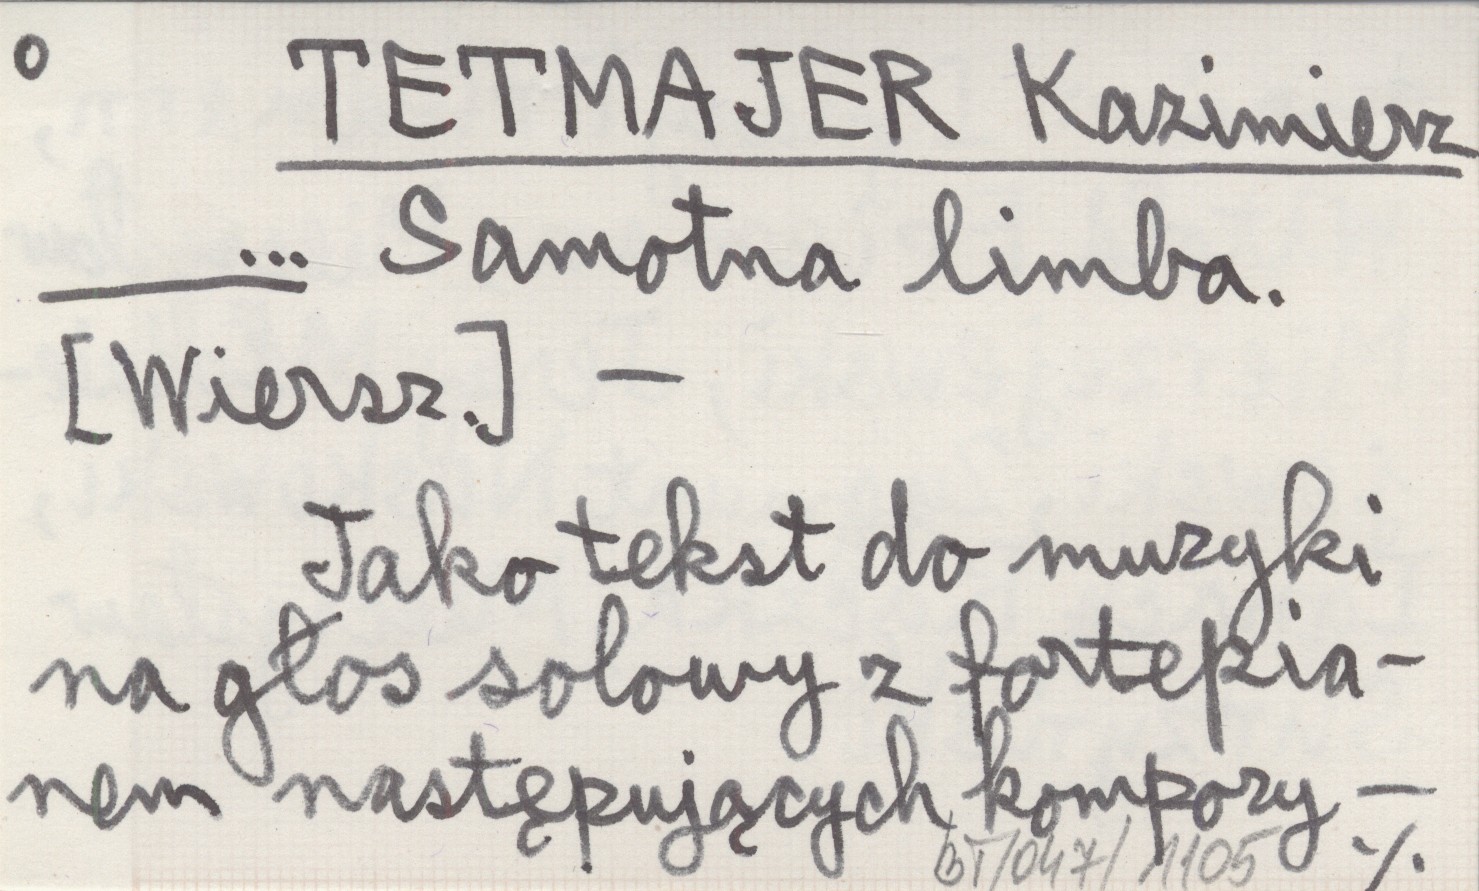 o TETMAJER Kazimierz
... Samotna limba.
[Wiersz.] —
Jako tekst do muzyki
na głos solowy z fortepia-
nem następujących kompozy-
BT/047/1105 ./.